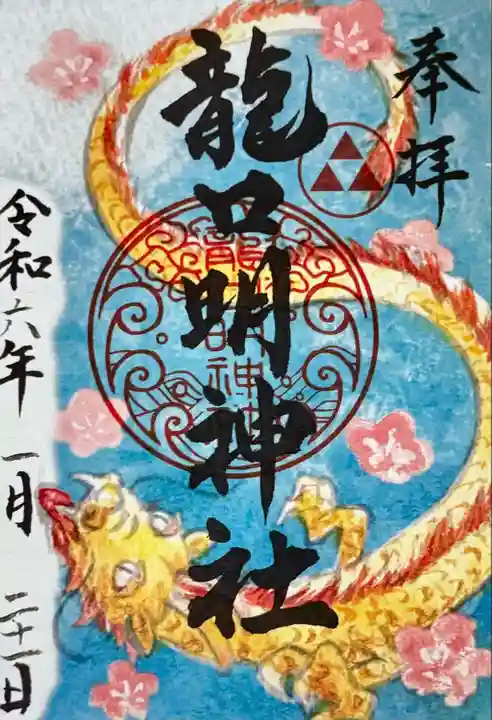 奉拝
龍口明神社
令和六年 一月 二十一日